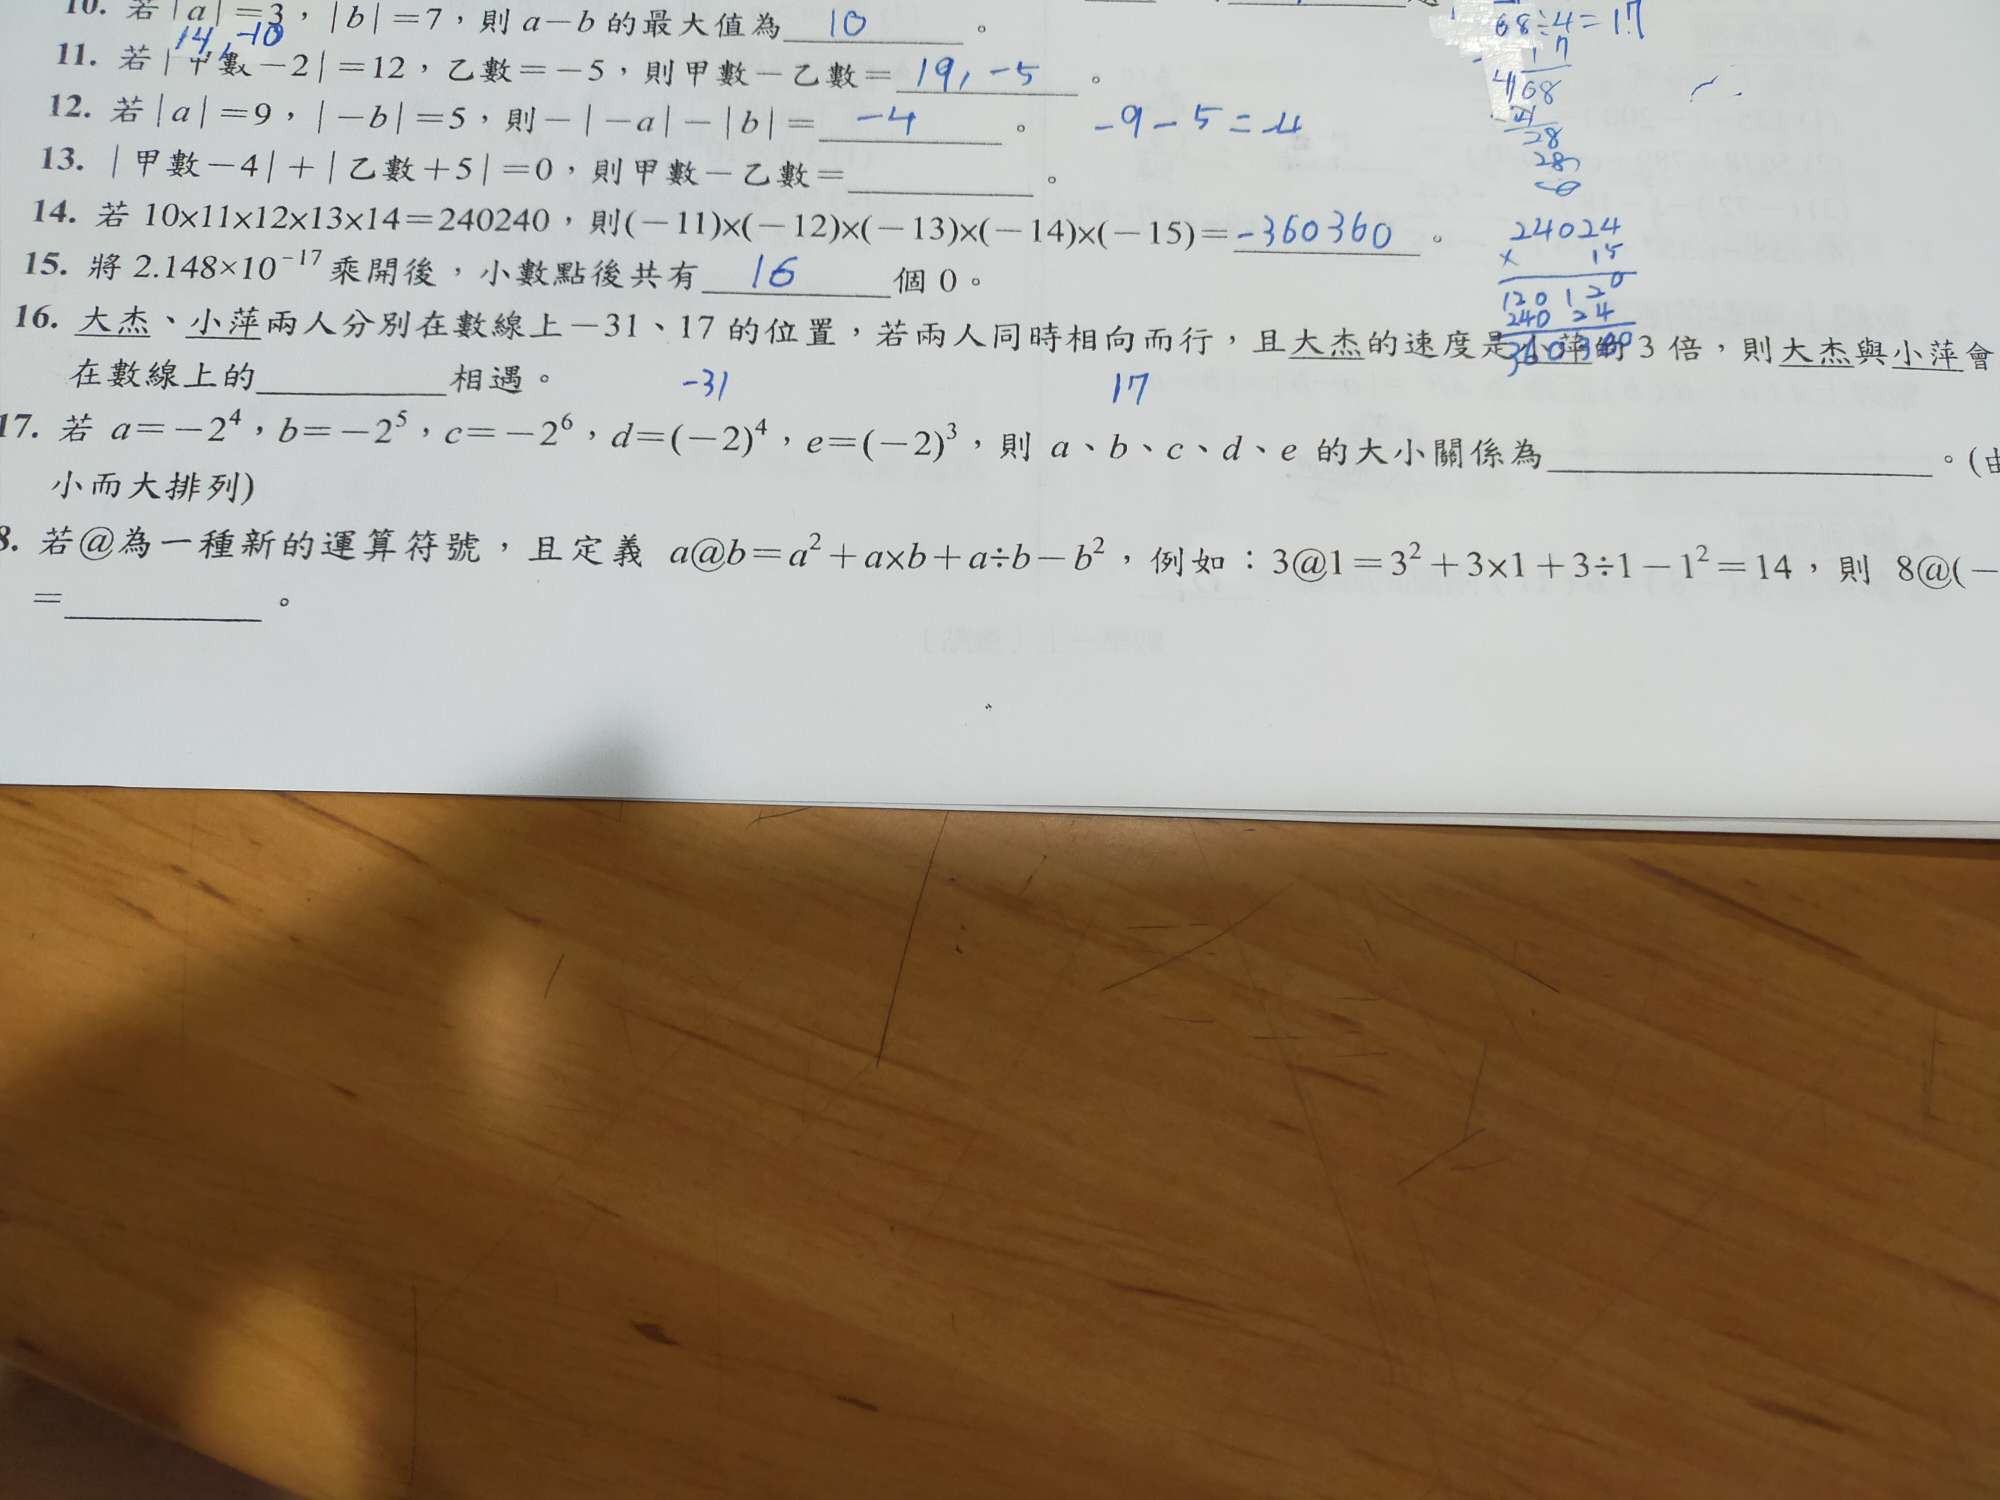 10. 若|a|=3，|b|=7，則 a-b 的最大值為 10 。
68÷4=17
14, -10
11. 若|甲數-2|=12，乙數=-5，則甲數-乙數= 19, -5 。
17
4)68
12. 若|a|=9，|-b|=5，則-|-a|-|b|= -4 。 -9-5=-4
28
28
0
13. |甲數-4|+|乙數+5|=0，則甲數-乙數=＿＿＿。
14. 若 10×11×12×13×14=240240，則(-11)×(-12)×(-13)×(-14)×(-15)= -360360 。
24024
× 15
120120
24024
360360
15. 將 2.148×10⁻¹⁷ 乘開後，小數點後共有 16 個 0。
16. 大杰、小萍兩人分別在數線上-31、17 的位置，若兩人同時相向而行，且大杰的速度是小萍的 3 倍，則大杰與小萍會
在數線上的＿＿＿相遇。 -31 17
17. 若 a=-2⁴，b=-2⁵，c=-2⁶，d=(-2)⁴，e=(-2)³，則 a、b、c、d、e 的大小關係為＿＿＿。(由
小而大排列)
8. 若@為一種新的運算符號，且定義 a@b=a²+a×b+a÷b-b²，例如：3@1=3²+3×1+3÷1-1²=14，則 8@(-
=＿＿＿。